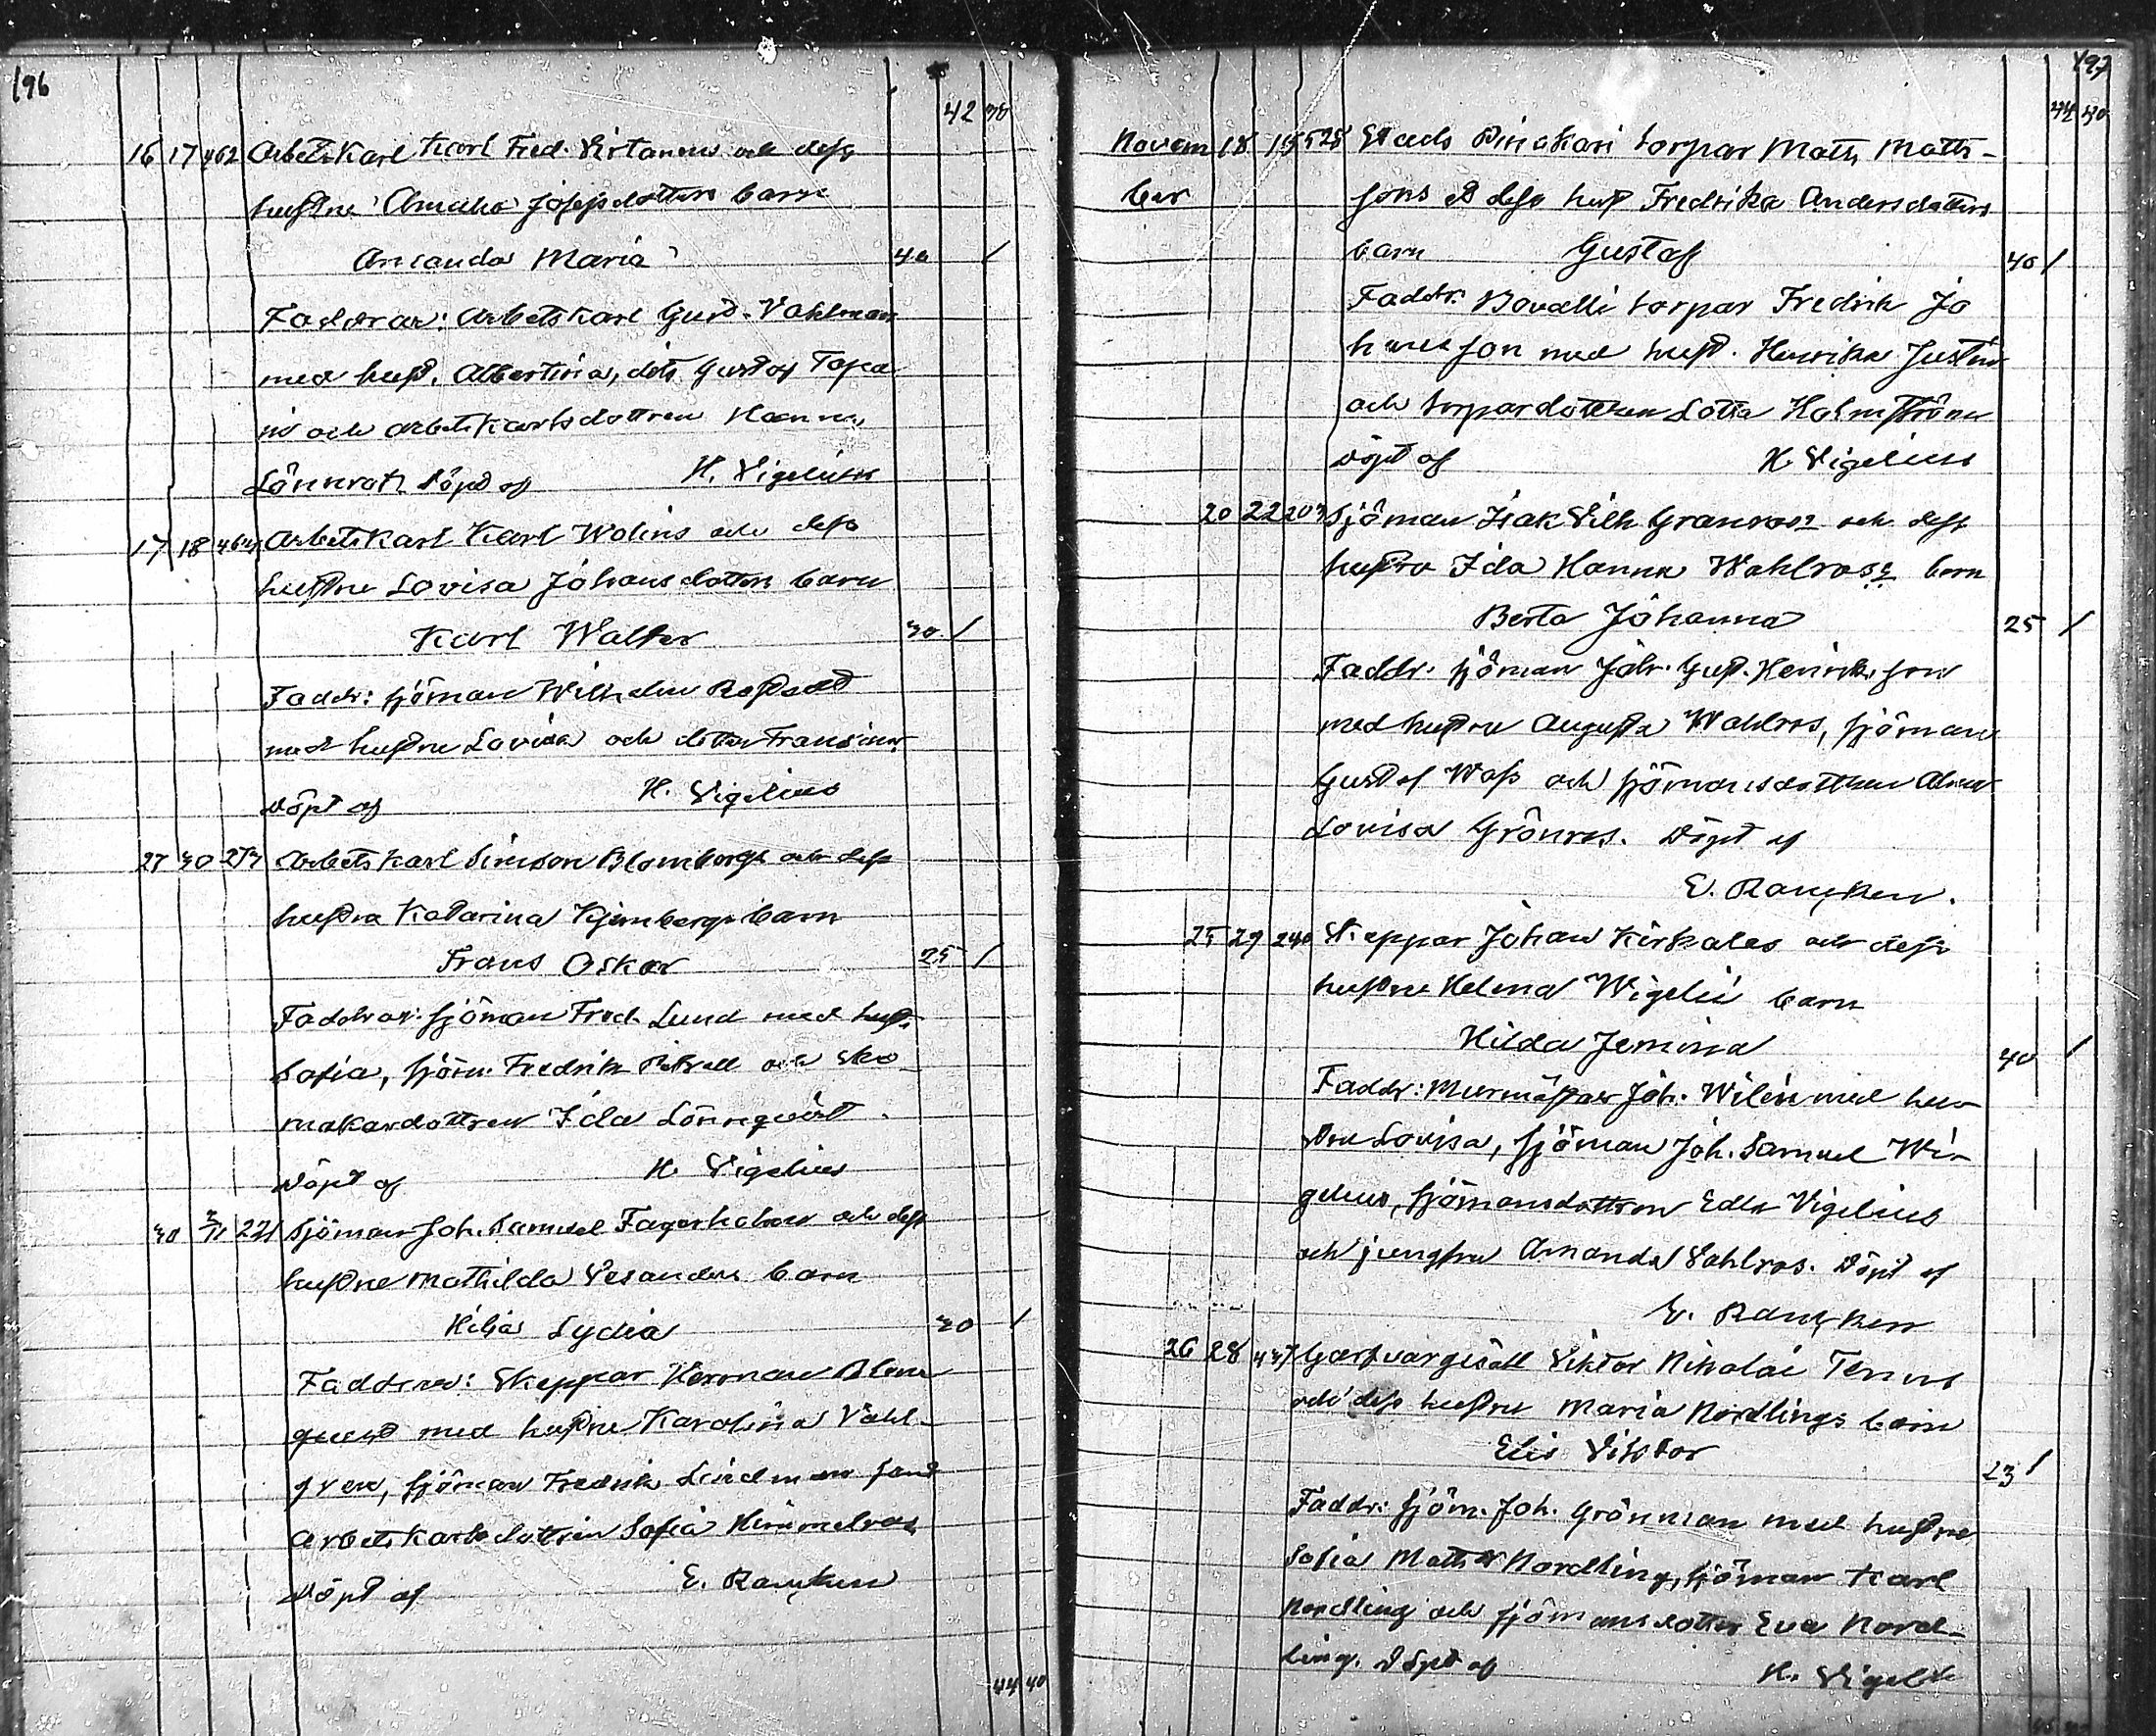 196
42 30
16 17 462 Arbets Karl Karl Fred. Virtanens och dess
hustru Amalia Josefsdotters barn
Amanda Maria 40 /
Faddrar: Arbetskarl Gust. Vahlman
med hust. Albertina, dito Gustaf Tapa
ni och arbetskarlsdottren Hanna
Lönnrot. Döpt af H. Vigelius
17 18 Arbets Karl Karl Wolins och dess
hustru Lovisa Johansdotters barn
Karl Walter 30 /
Faddr: sjöman Wilhelm
med hustru Lovisa och dotter Fransina
döpt af H. Vigelius
27 30 273 Arbets Karl Simson Blombergs och dess
hustru Katarina Kjembergs barn
Frans Oskar 25 /
Faddrar: sjöman Fred. Lund med hust.
Sofia, sjöm. Fredrik och sko
makardottren Ida Lönnqvist.
Döpt af H. Vigelius
30 2/11 221 Sjöman Joh. Samuel Fagerholms och dess
hustru Mathilda Vesanders barn
Hilja Lydia 30 /
Faddrar: Skeppar Herman Blom
qvist med hustru Karolina Vahl-
gren, sjöman Fredrik Lindman samt
Arbetskarlsdottren Sofia Himmelroos
Döpt af E. Rancken
44 40
197
44 40
Novem 18 19 528 Stads torpar Matts Matts-
ber sons & dess hust Fredrika Andersdotters
barn Gustaf 40 /
Faddr: torpar Fredrik Jo
hansson med hust. Henrika Justina
och torpardottren Lotta Holmström
döpt af H. Vigelius
20 22 203 Sjöman Isak Vilh Granroos: och dess
hustru Ida Hanna Wahlroos: barn
Berta Johanna 25 /
Faddr. sjöman Joh. Gust. Henriksson
med hustru Augusta Wahlros, sjöman
Gustaf Wass och sjömansdottren
Lovisa Grönros. Döpt af
E. Rancken.
25 29 240 Skeppar Johan Kirkales och dess
hustru Helena Wigelii barn
Hilda Jemina 40 /
Faddr: Murmästar Joh. Wilén med hus-
tru Lovisa, sjöman Joh. Samuel Wi-
gelius, sjömansdottren Edla Vigelius
och jungfru Amanda Vahlros. Döpt af
E. Rancken
26 28 437 Garfvargesäll Viktor Nikolai
och dess hustru Maria Nordlings barn
Elis Viktor 23 /
Faddr: sjöm. Joh. Grönman med hustru
Sofia Matts Nordling, sjöman Karl
Nordling och sjömansdotter Eva Nord-
ling. Döpt af H. Vigelius